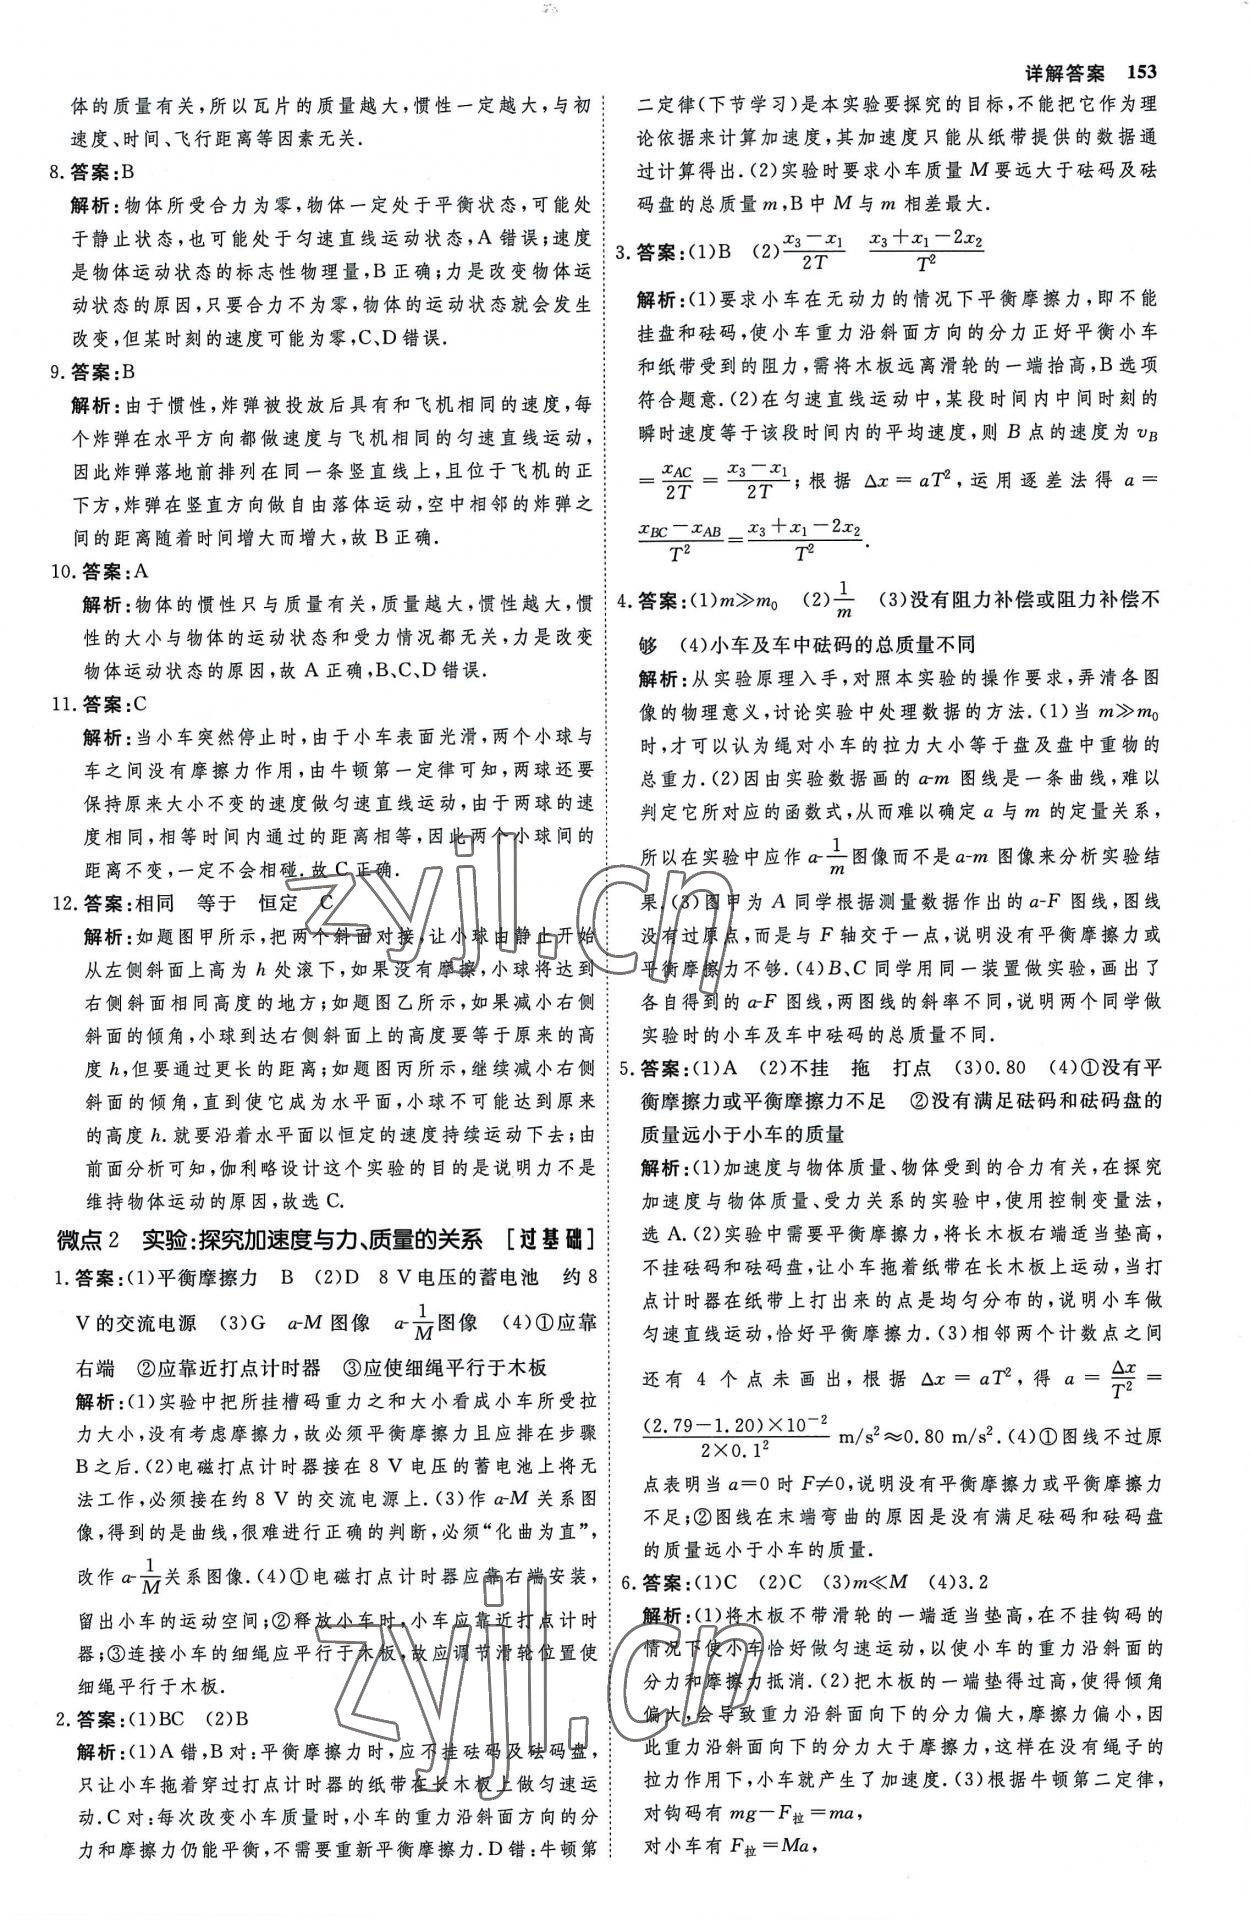 详解答案 153
体的质量有关,所以瓦片的质量越大,惯性一定越大,与初
速度、时间、飞行距离等因素无关.
8. 答案:B
解析:物体所受合力为零,物体一定处于平衡状态,可能处
于静止状态,也可能处于匀速直线运动状态,A 错误;速度
是物体运动状态的标志性物理量,B 正确;力是改变物体运
动状态的原因,只要合力不为零,物体的运动状态就会发生
改变,但某时刻的速度可能为零,C、D 错误.
9. 答案:B
解析:由于惯性,炸弹被投放后具有和飞机相同的速度,每
个炸弹在水平方向都做速度与飞机相同的匀速直线运动,
因此炸弹落地前排列在同一条竖直线上,且位于飞机的正
下方,炸弹在竖直方向做自由落体运动,空中相邻的炸弹之
间的距离随着时间增大而增大,故 B 正确.
10. 答案:A
解析:物体的惯性只与质量有关,质量越大,惯性越大,惯
性的大小与物体的运动状态和受力情况都无关,力是改变
物体运动状态的原因,故 A 正确,B、C、D 错误.
11. 答案:C
解析:当小车突然停止时,由于小车表面光滑,两个小球与
车之间没有摩擦力作用,由牛顿第一定律可知,两球还要
保持原来大小不变的速度做匀速直线运动,由于两球的速
度相同,相等时间内通过的距离相等,因此两个小球间的
距离不变,一定不会相碰.故 C 正确.
12. 答案:相同 等于 恒定 C
解析:如题图甲所示,把两个斜面对接,让小球由静止开始
从左侧斜面上高为 h 处滚下,如果没有摩擦,小球将达到
右侧斜面相同高度的地方;如题图乙所示,如果减小右侧
斜面的倾角,小球到达右侧斜面上的高度要等于原来的高
度 h,但要通过更长的距离;如题图丙所示,继续减小右侧
斜面的倾角,直到使它成为水平面,小球不可能达到原来
的高度 h.就要沿着水平面以恒定的速度持续运动下去;由
前面分析可知,伽利略设计这个实验的目的是说明力不是
维持物体运动的原因,故选 C.
微点 2 实验:探究加速度与力、质量的关系 [过基础]
1. 答案:(1)平衡摩擦力 B (2)D 8 V 电压的蓄电池 约 8
V 的交流电源 (3)G a-M 图像 a-1/M 图像 (4)①应靠
右端 ②应靠近打点计时器 ③应使细绳平行于木板
解析:(1)实验中把所挂槽码重力之和大小看成小车所受拉
力大小,没有考虑摩擦力,故必须平衡摩擦力且应排在步骤
B 之后.(2)电磁打点计时器接在 8 V 的蓄电池上将无
法工作,必须接在约 8 V 的交流电源上.(3)作 a-M 关系图
像,得到的是曲线,很难进行正确的判断,必须“化曲为直”,
改作 a-1/M 关系图像.(4)①电磁打点计时器应靠右端安装,
留出小车的运动空间;②释放小车时,小车应靠近打点计时
器;③连接小车的细绳应平行于木板,故应调节滑轮位置使
细绳平行于木板.
2. 答案:(1)BC (2)B
解析:(1)A 错,B 对:平衡摩擦力时,应不挂砝码及砝码盘,
只让小车拖着穿过打点计时器的纸带在长木板上做匀速运
动.C 对:每次改变小车质量时,小车的重力沿斜面方向的分
力和摩擦力仍能平衡,不需要重新平衡摩擦力.D 错:牛顿第
二定律(下节学习)是本实验要探究的目标,不能把它作为理
论依据来计算加速度,其加速度只能从纸带提供的数据通
过计算得出.(2)实验时要求小车质量 M 要远大于砝码及砝
码盘的总质量 m,B 中 M 与 m 相差最大.
3. 答案:(1)B (2)(x₃-x₁)/2T (x₃+x₁-2x₂)/T²
解析:(1)要求小车在无动力的情况下平衡摩擦力,即不能
挂盘和砝码,使小车重力沿斜面方向的分力正好平衡小车
和纸带受到的阻力,需将木板远离滑轮的一端抬高,B 选项
符合题意.(2)在匀速直线运动中,某段时间内中间时刻的
瞬时速度等于该段时间内的平均速度,则 B 点的速度为 v_B
=x_AC/2T=(x₃-x₁)/2T;根据 Δx=aT²,运用逐差法得 a=
(x_BC-x_AB)/T²=(x₃+x₁-2x₂)/T².
4. 答案:(1)m≫m₀ (2)1/m (3)没有阻力补偿或阻力补偿不
够 (4)小车及车中砝码的总质量不同
解析:从实验原理入手,对照本实验的操作要求,弄清各图
像的物理意义,讨论实验中处理数据的方法.(1)当 m≫m₀
时,才可以认为绳对小车的拉力大小等于盘及盘中重物的
总重力.(2)因由实验数据画的 a-m 图线是一条曲线,难以
判定它所对应的函数式,从而难以确定 a 与 m 的定量关系,
所以在实验中应作 a-1/m 图像而不是 a-m 图像来分析实验结
果.(3)图甲为 A 同学根据测量数据作出的 a-F 图线,图线
没有过原点,而是与 F 轴交于一点,说明没有平衡摩擦力或
平衡摩擦力不够.(4)B、C 同学用同一装置做实验,画出了
各自得到的 a-F 图线,两图线的斜率不同,说明两个同学做
实验时的小车及车中砝码的总质量不同.
5. 答案:(1)A (2)不挂 拖 打点 (3)0.80 (4)①没有平
衡摩擦力或平衡摩擦力不足 ②没有满足砝码和砝码盘的
质量远小于小车的质量
解析:(1)加速度与物体质量、物体受到的合力有关,在探究
加速度与物体质量、受力关系的实验中,使用控制变量法,
选 A.(2)实验中需要平衡摩擦力,将长木板右端适当垫高,
不挂砝码和砝码盘,让小车拖着纸带在长木板上运动,当打
点计时器在纸带上打出来的点是均匀分布的,说明小车做
匀速直线运动,恰好平衡摩擦力.(3)相邻两个计数点之间
还有 4 个点未画出,根据 Δx=aT²,得 a=Δx/T²=
(2.79-1.20)×10⁻²/2×0.1² m/s²≈0.80 m/s².(4)①图线不过原
点表明当 a=0 时 F≠0,说明没有平衡摩擦力或平衡摩擦力
不足;②图线在末端弯曲的原因是没有满足砝码和砝码盘
的质量远小于小车的质量.
6. 答案:(1)C (2)C (3)m≪M (4)3.2
解析:(1)将木板不带滑轮的一端适当垫高,在不挂钩码的
情况下使小车恰好做匀速运动,以使小车的重力沿斜面的
分力和摩擦力抵消.(2)把木板的一端垫得过高,使得倾角
偏大,会导致重力沿斜面向下的分力偏大,摩擦力偏小,因
此重力沿斜面向下的分力大于摩擦力,因此在没有绳子的
拉力作用下,小车就产生了加速度.(3)根据牛顿第二定律,
对钩码有 mg-F拉=ma,
对小车有 F拉=Ma,
zyjl.cn
zyjl.cn